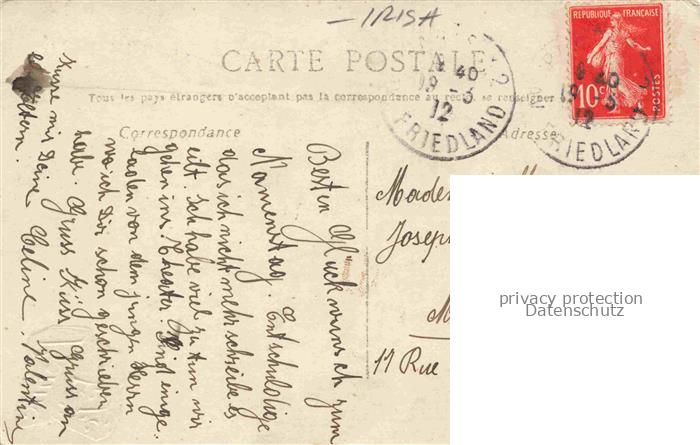 - IRISA
CARTE POSTALE
REPUBLIQUE FRANÇAISE
10c
POSTES
40
19 - 3
12
FRIEDLAND
40
19 3
12
FRIEDLAND
Tous les pays étrangers n'acceptant pas la correspondance au recto, se renseigner
Correspondance
Adresse
Besten Glückwunsch zum
Namenstag. Entschuldige
das ich nicht mehr schreibe es
eilt. Ich habe viel zu tun wir
gehen ins Theater. Sind einge
laden von dem jungen Herrn
wo ich Dir schon geschrieben
habe. Gruss Küss Gruss an
Eltern. Deine Celine. Valentine
Küsse mir Deine
Joseph
M
11 Rue
privacy protection
Datenschutz